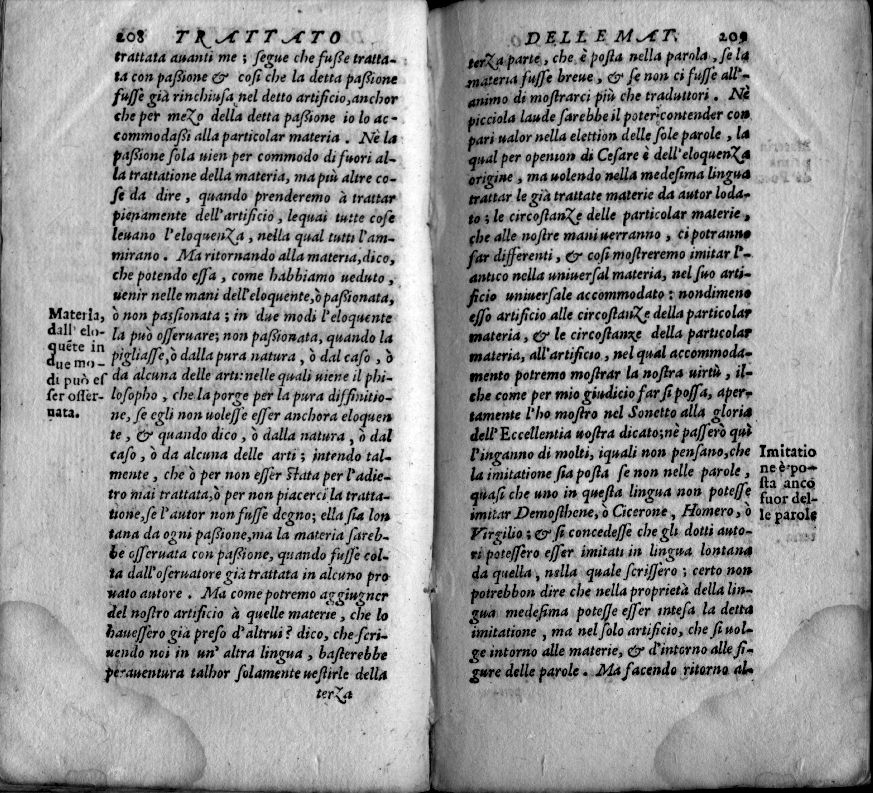 208 TRATTATO
trattata auanti me ; segue che fuße tratta-
ta con paßione & cosi che la detta paßione
fusse già rinchiusa nel detto artificio, anchor
che per mezo della detta paßione io lo ac-
commodaßi alla particolar materia . Nè la
paßione sola uien per commodo di fuori al-
la trattatione della materia, ma più altre co-
se da dire , quando prenderemo à trattar
pienamente dell'artificio , lequai tutte cose
leuano l'eloquenza , nella qual tutti l'am-
mirano . Ma ritornando alla materia, dico,
che potendo essa , come habbiamo ueduto ,
uenir nelle mani dell'eloquente, ò paßionata,
ò non passionata ; in due modi l'eloquente
la può osseruare; non paßionata, quando la
pigliasse, ò dalla pura natura , ò dal caso , ò
da alcuna delle arti: nelle quali uiene il phi-
losopho , che la porge per la pura diffinitio-
ne, se egli non uolesse esser anchora eloquen
te , & quando dico , ò dalla natura , ò dal
caso , ò da alcuna delle arti ; intendo tal-
mente , che ò per non esser stata per l'adie-
tro mai trattata, ò per non piacerci la tratta-
tione, se l'autor non fusse degno; ella sia lon
tana da ogni paßione, ma la materia sareb-
be osseruata con paßione, quando fusse col-
ta dall'oseruatore già trattata in alcuno pro
uato autore . Ma come potremo aggiugner
del nostro artificio à quelle materie , che lo
hauessero già preso d'altrui? dico, che scri-
uendo noi in un' altra lingua , basterebbe
perauentura talhor solamente uestirle della
terza
Materia,
dall' elo-
quẽte in
due mo-
di può es
ser osser-
uata.
DELLE MAT. 209
terza parte , che è posta nella parola , se la
materia fusse breue , & se non ci fusse all'-
animo di mostrarci più che traduttori . Nè
picciola laude sarebbe il poter contender con
pari ualor nella elettion delle sole parole , la
qual per openion di Cesare è dell'eloquenza
origine , ma uolendo nella medesima lingua
trattar le già trattate materie da autor loda-
to ; le circostanze delle particolar materie ,
che alle nostre mani uerranno , ci potranno
far differenti , & cosi mostreremo imitar l'-
antico nella uniuersal materia, nel suo arti-
ficio uniuersale accommodato : nondimeno
esso artificio alle circostanze della particolar
materia , & le circostanze della particolar
materia, all'artificio , nel qual accommoda-
mento potremo mostrar la nostra uirtù , il-
che come per mio giudicio far si possa, aper-
tamente l'ho mostro nel Sonetto alla gloria
dell'Eccellentia uostra dicato; nè passerò quì
l'inganno di molti, iquali non pensano, che
la imitatione sia posta se non nelle parole ,
quasi che uno in questa lingua non potesse
imitar Demosthene, ò Cicerone , Homero, ò
Virgilio ; & si concedesse che gli dotti auto-
ri potessero esser imitati in lingua lontana
da quella , nella quale scrissero ; certo non
potrebbon dire che nella proprietà della lin-
gua medesima potesse esser intesa la detta
imitatione , ma nel solo artificio, che si uol-
ge intorno alle materie, & d'intorno alle fi-
gure delle parole . Ma facendo ritorno al-
Imitatio
ne è po-
sta anco
fuor del-
le parole